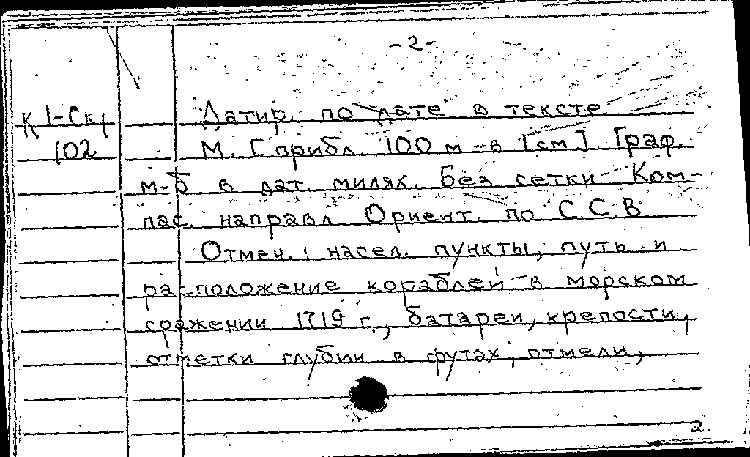 - 2 -
К 1-Ск/
102
Датир. по дате в тексте
М. [прибл. 100 м -в 1см]. Граф.
м-б в дат. милях. Без сетки. Ком-
пас. направл. Ориент. по ССВ.
Отмеч.: насел. пункты, путь и
расположение кораблей в морском
сражении 1719 г., батареи, крепости,
отметки глубин в футах, отмели,
2.